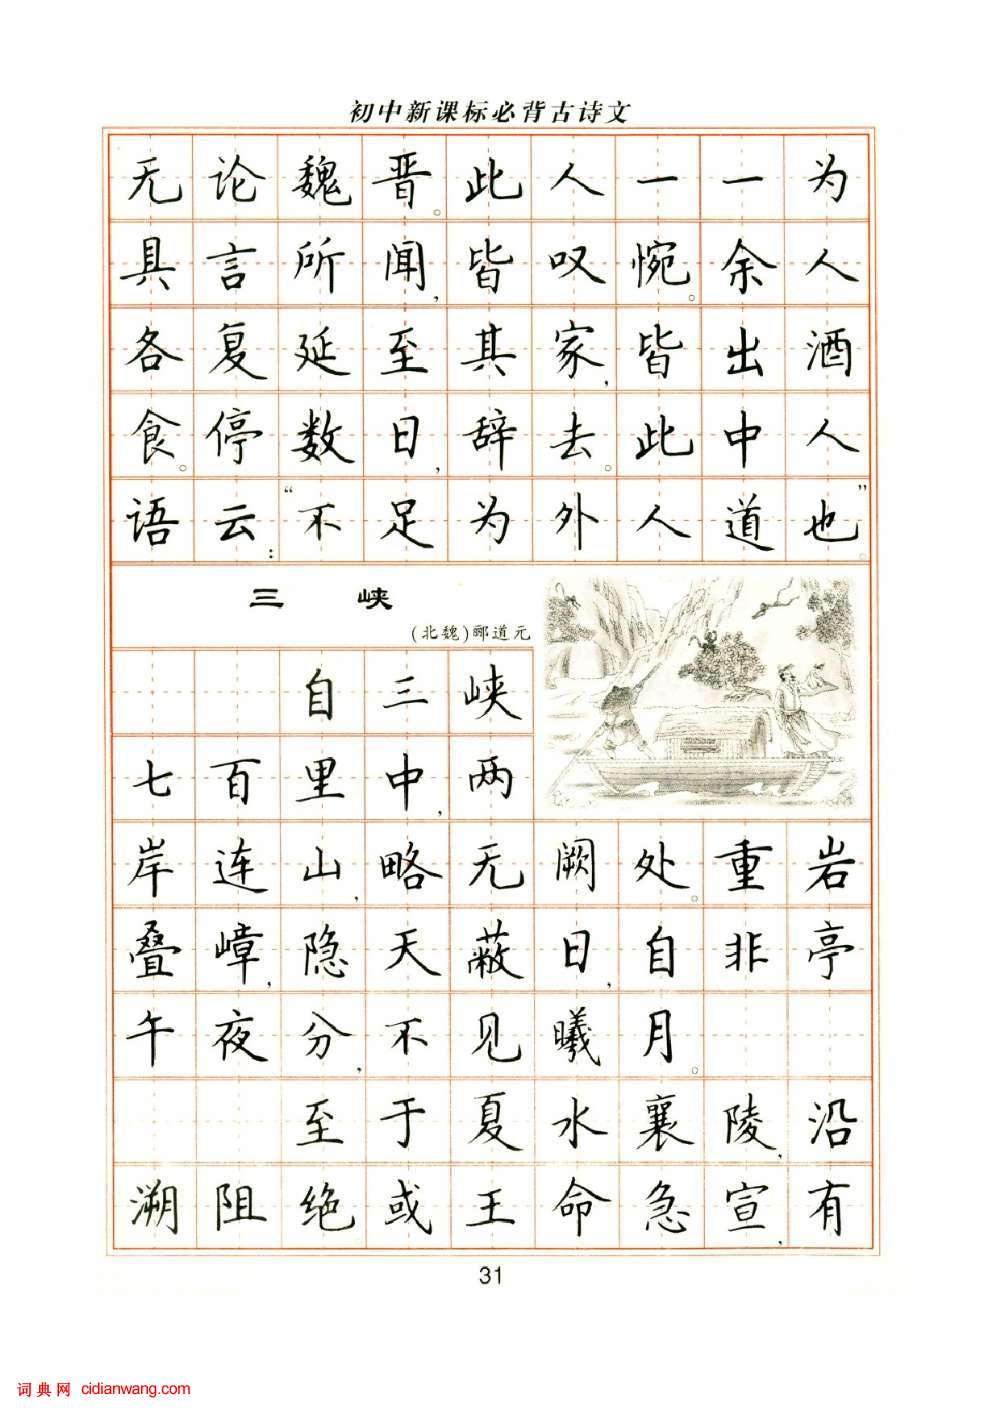 初中新课标必背古诗文
无论魏晋。此人一一为
具言所闻,皆叹惋。余人
各复延至其家,皆出酒
食。停数日,辞去。此中人
语云:“不足为外人道也”。
三 峡
(北魏)郦道元
自三峡
七百里中,两
岸连山,略无阙处。重岩
叠嶂,隐天蔽日,自非亭
午夜分,不见曦月。
至于夏水襄陵,沿
溯阻绝或王命急宣,有
31
词典网 cidianwang.com